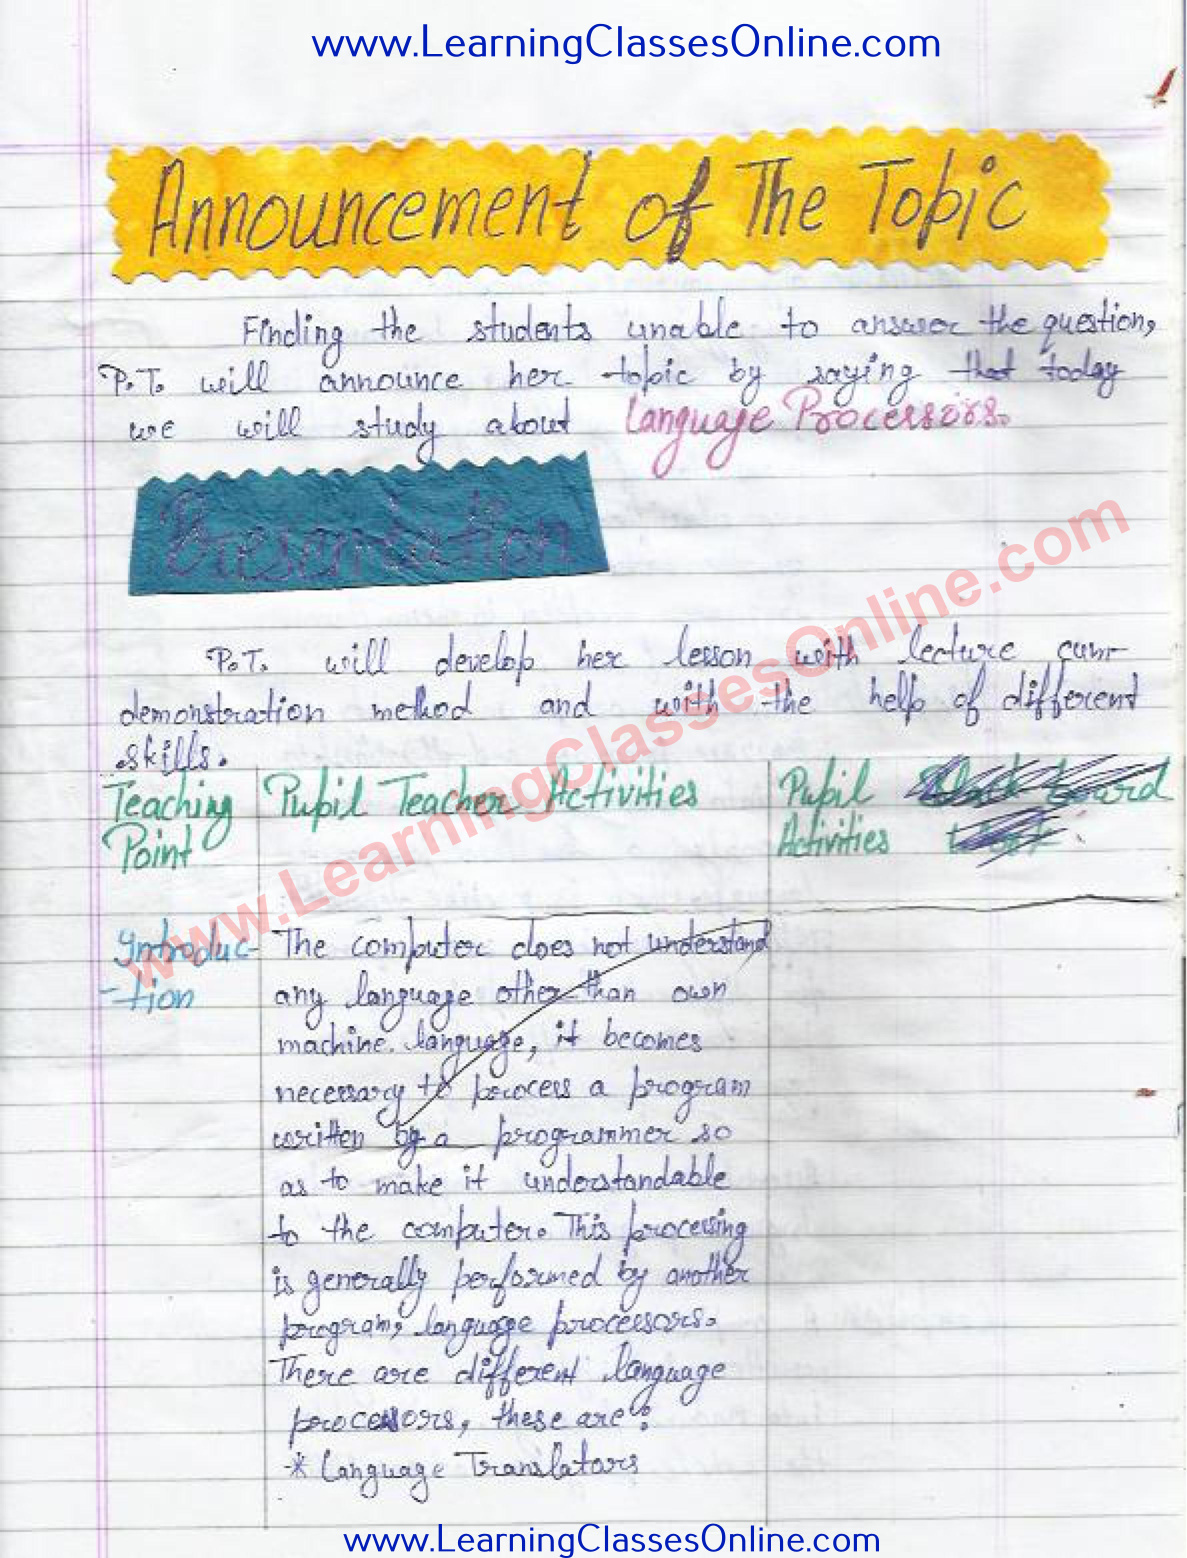 www.LearningClassesOnline.com
Announcement of The Topic
Finding the students unable to answer the question,
P.T. will announce her topic by saying that today
we will study about Language Processors.
Presentation
P.T. will develop her lesson with lecture cum-
demonstration method and with the help of different
skills.
www.LearningClassesOnline.com
Teaching Point
Pupil Teacher Activities
Pupil Activities
Introduc-
-tion
The computer does not understand
any language other than own
machine. language, it becomes
necessary to process a program
written by a programmer so
as to make it understandable
to the computer. This processing
is generally performed by another
program, language processors.
There are different language
processors, these are:
* Language Translators
www.LearningClassesOnline.com